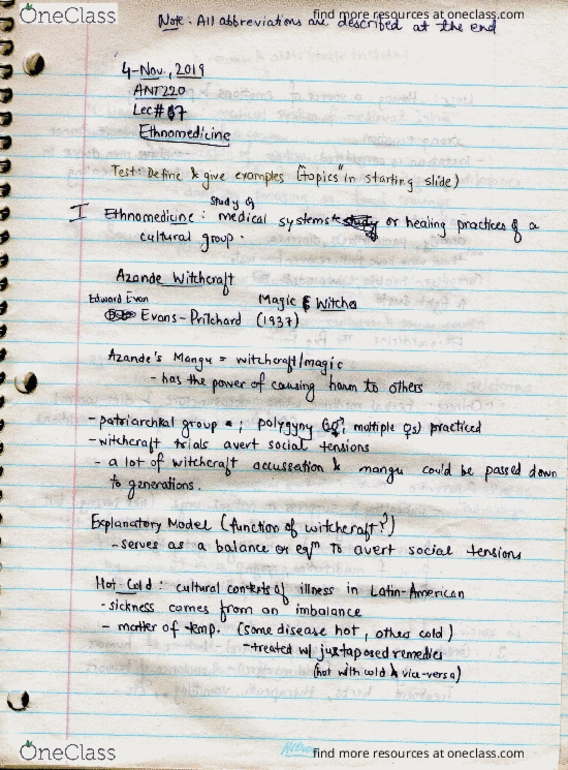 OneClass
find more resources at oneclass.com
Note: All abbreviations are described at the end
4-Nov, 2019
ANT220
Lec# 7
Ethnomedicine
Test: Define & give examples ("topics" in starting slide)
I Ethnomedicine: study of medical systems or healing practices of a
cultural group.
Azande Witchcraft
Edward Evan Magic & Witches
Evans-Pritchard (1937)
Azande's Mangu = witchcraft/magic
- has the power of causing harm to others
- patriarchal group ; polygyny (♂, multiple ♀s) practiced
- witchcraft trials avert social tensions
- a lot of witchcraft accussation & mangu could be passed down
to generations.
Explanatory Model (function of witchcraft?)
- serves as a balance or eqm to avert social tensions
Hot-Cold: cultural contexts of illness in Latin-American
- sickness comes from an imbalance
- matter of temp. (some disease hot, other cold)
- treated w/ juxtaposed remedies
(hot with cold & vice-versa)
OneClass
find more resources at oneclass.com